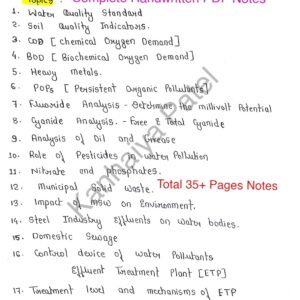 Topics : - Complete Handwritten PDF Notes
1. Water Quality Standard
2. Soil Quality Indicators.
3. COD [ Chemical Oxygen Demand ]
4. BOD [ Biochemical Oxygen Demand ]
5. Heavy metals.
6. POPs [ Persistent Organic Pollutants ]
7. Fluoride Analysis - Determine the Millivolt Potential
8. Cyanide Analysis. - Free & Total Cyanide
9. Analysis of Oil and Grease
10. Role of Pesticides in Water Pollution
11. Nitrate and phosphates.
12. Municipal Solid Waste. Total 35+ Pages Notes
13. Impact of MSW on Environment.
14. Steel Industry Effluents on water bodies.
15. Domestic Sewage
16. Control device of Water Pollutants
Effluent Treatment Plant [ETP]
17. Treatment level and mechanisms of ETP
Kanhaiya Patel